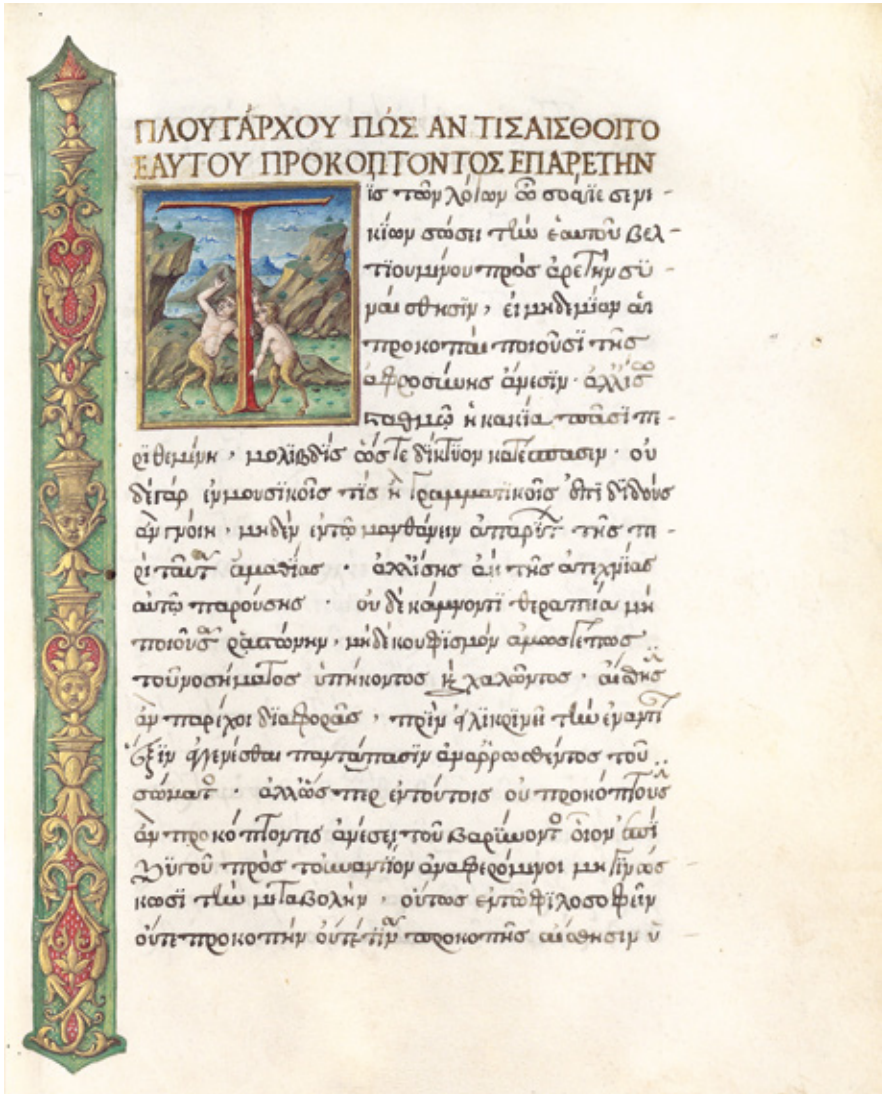 ΠΛΟΥΤΑΡΧΟΥ ΠΩΣ ΑΝ ΤΙΣ ΑΙΣΘΟΙΤΟ
ΕΑΥΤΟΥ ΠΡΟΚΟΠΤΟΝΤΟΣ ΕΠ ΑΡΕΤΗΝ
Τίς τῶν λόγων ὦ σόσσιε σενε-
κίων σώσει τὴν ἑαυτοῦ βελ-
τιουμένου πρὸς ἀρετὴν συ-
ναίσθησιν, εἰ μηδεμίαν αἱ
προκοπαὶ ποιοῦσι τῆς
ἀφροσύνης ἄνεσιν· ἀλλ' ἴσῳ
σταθμῷ ἡ κακία πᾶσι πε-
ριθεμένη, μολιβδὶς ὥστε δίκτυον κατέσπασεν· οὐ
δὲ γὰρ ἐν μουσικοῖς τις ἢ γραμματικοῖς ἐπιδιδοὺς
ἂν γνοίη, μηδὲν ἐν τῷ μανθάνειν ἀπαρύτ τῆς πε-
ρὶ ταῦτ' ἀμαθίας· ἀλλ' ἴσης ἀεὶ τῆς ἀτεχνίας
αὐτῷ παρούσης· οὐδὲ κάμνοντι θεραπεία μὴ
ποιοῦσα ῥαστώνην, μηδὲ κουφισμὸν ἀμωσγέπως
τοῦ νοσήματος ὑπείκοντος καὶ χαλῶντος, αἴσθησιν
ἂν παρέχοι διαφορᾶς, πρὶν εἰλικρινῆ τὴν ἐναντίαν
ἕξιν ἐγγενέσθαι παντάπασιν ἀναρρωσθέντος τοῦ
σώματος· ἀλλ' ὥσπερ ἐν τούτοις οὐ προκόπτουσιν
ἂν προκόπτοντες ἀνέσει τοῦ βαρύνοντος οἷον ἐπὶ
ζυγοῦ πρὸς τοὐναντίον ἀναφερόμενοι μὴ γινώσ
κωσι τὴν μεταβολὴν, οὕτως ἐν τῷ φιλοσοφεῖν
οὔτε προκοπὴν οὔτε τιν προκοπῆς αἴσθησιν ὑ